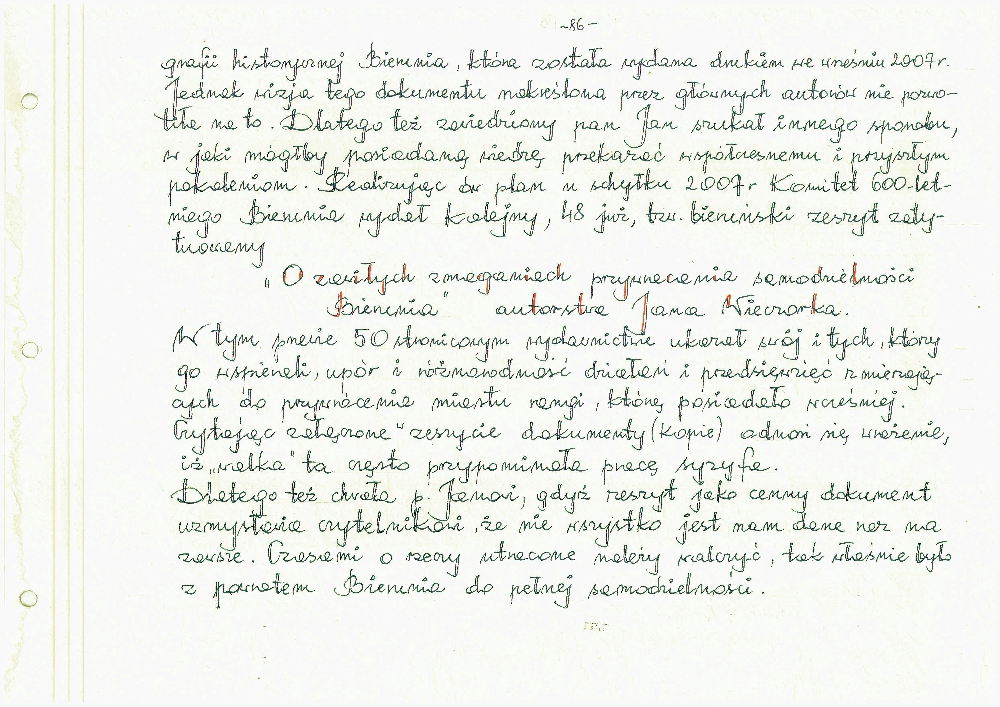 -86-
grafii historycznej Bierunia, która została wydana drukiem we wrześniu 2007 r.
Jednak wizja tego dokumentu nakreślona przez głównych autorów nie pozwo-
liła na to. Dlatego też zawiedziony pan Jan szukał innego sposobu,
w jaki mógłby posiadaną wiedzę przekazać współczesnemu i przyszłym
pokoleniom. Realizując ów plan u schyłku 2007 r Komitet 600-let-
niego Bierunia wydał kolejny, 48 już, tzw. bieruński zeszyt zaty-
tułowany
„O zawiłych zmaganiach przywracania samodzielności
Bierunia" autorstwa Jana Wieczorka.
W tym prawie 50 stronicowym wydawnictwie ukazał swój i tych, którzy
go wspierali, upór i różnorodność działań i przedsięwzięć zmierzają-
cych do przywrócenia miastu rangi, którą posiadało wcześniej.
Czytając załączone w zeszycie dokumenty (kopie) odnosi się wrażenie,
iż „walka" ta często przypominała pracę syzyfa.
Dlatego też chwała p. Janowi, gdyż zeszyt jako cenny dokument
uzmysławia czytelnikowi, że nie wszystko jest nam dane raz na
zawsze. Czasami o rzeczy utracone należy walczyć, tak właśnie było
z powrotem Bierunia do pełnej samodzielności.